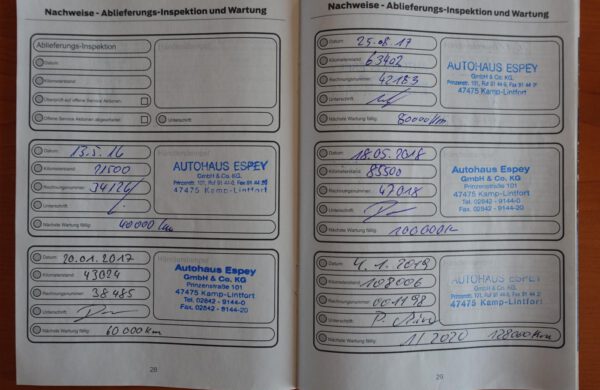 Nachweise - Ablieferungs-Inspektion und Wartung
Ablieferungs-Inspektion
Datum:
Kilometerstand:
Überprüft auf offene Service Aktionen:
Offene Service Aktionen abgearbeitet:
Unterschrift:
Datum: 13.5.16
Kilometerstand: 21500
Rechnungsnummer: 34126
Unterschrift:
Nächste Wartung fällig: 40000 km
AUTOHAUS ESPEY
GmbH & Co. KG
Prinzenstr. 101, Ruf 91 44-0, Fax 91 44
47475 Kamp-Lintfort
Datum: 20.01.2017
Kilometerstand: 43024
Rechnungsnummer: 38485
Unterschrift:
Nächste Wartung fällig: 60000 km
Autohaus Espey
GmbH & Co. KG
Prinzenstraße 101
47475 Kamp-Lintfort
Tel. 02842 - 9144-0
Fax. 02842 - 9144-20
28
Nachweise - Ablieferungs-Inspektion und Wartung
Datum: 25.08.17
Kilometerstand: 63402
Rechnungsnummer: 42183
Unterschrift:
Nächste Wartung fällig: 80000 km
AUTOHAUS ESPEY
GmbH & Co. KG
Prinzenstr. 101, Ruf 91 44-0, Fax 91 44
47475 Kamp-Lintfort
Datum: 18.05.2018
Kilometerstand: 85500
Rechnungsnummer: 47018
Unterschrift:
Nächste Wartung fällig: 100000
Autohaus Espey
GmbH & Co. KG
Prinzenstraße 101
47475 Kamp-Lintfort
Tel. 02842 - 9144-0
Fax. 02842 - 9144-20
Datum: 4.1.2019
Kilometerstand: 108006
Rechnungsnummer:
Unterschrift:
Nächste Wartung fällig: 1/2020 128000 km
AUTOHAUS ESPEY
GmbH & Co. KG
Prinzenstr. 101, Ruf 91 44-0, Fax 91 44
47475 Kamp-Lintfort
29